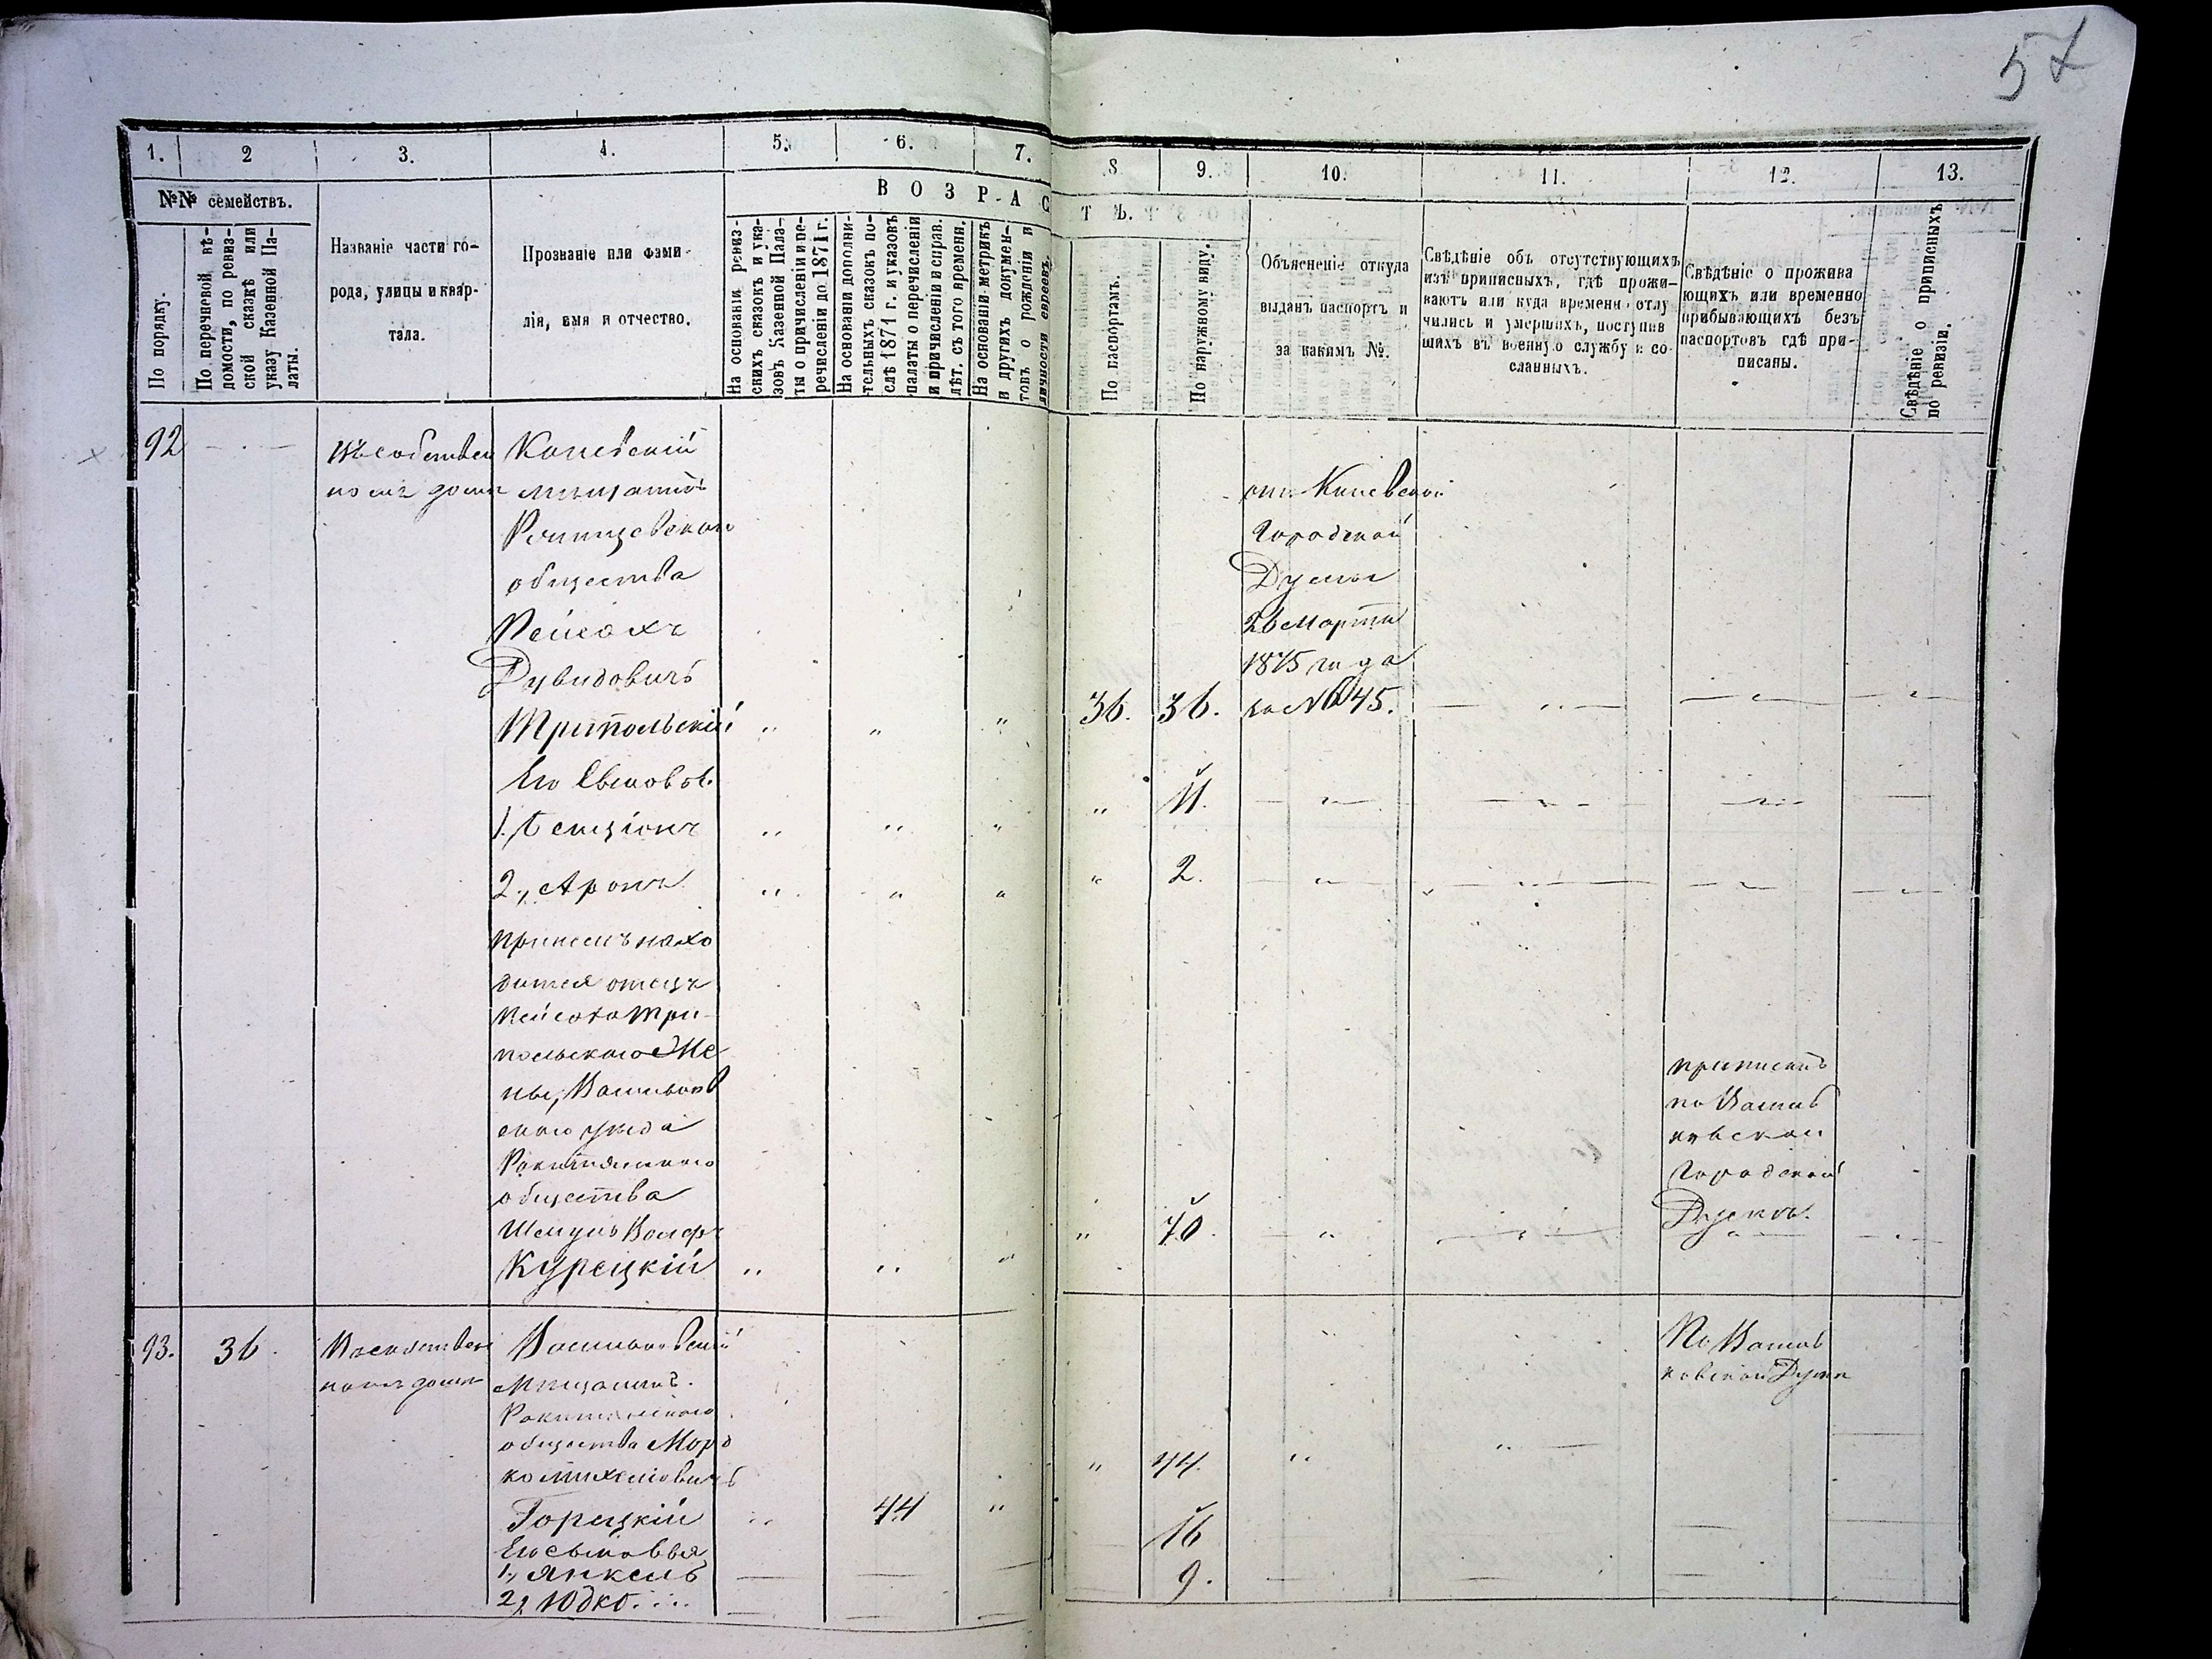 57
1.
2
3.
4.
5.
6.
7.
8
9.
10.
11.
12.
13.
№№ семействъ.
ВОЗРАС
ТЪ.
По порядку.
По перечневой вѣ-
домости, по ревиз-
ской сказкѣ или
указу Казенной Па-
латы.
Названіе части го-
рода, улицы и квар-
тала.
Прозваніе или фами-
лія, имя и отчество.
На основаніи ревиз-
скихъ сказокъ и ука-
зовъ Казенной Пала-
ты о причисленіи и пе-
речисленіи до 1871 г.
На основаніи дополни-
тельныхъ сказокъ по-
слѣ 1871 г. и указовъ
палаты о перечисленіи
и причисленіи и справ.
лѣт. съ того времени.
На основаніи метрикъ
и другихъ докумен-
товъ о рожденіи и
личности евреевъ.
По паспортамъ.
По наружному виду.
Объясненіе откуда
выданъ паспортъ и
за какимъ №.
Свѣдѣніе объ отсутствующихъ
изъ приписныхъ, гдѣ прожи-
ваютъ или куда временно отлу
чились и умершихъ, поступив
шихъ въ военную службу и со-
сланныхъ.
Свѣдѣніе о прожива
ющихъ или временно
прибывающихъ безъ
паспортовъ гдѣ при-
писаны.
Свѣдѣніе о приписныхъ
по ревизіи.
92
Въ собствен
номъ домѣ
мѣщанинъ
общества
Пейсахъ
Дувидовичъ
Трипольскій
Его Сыновья
1,
2, Аронъ
при немъ нахо
дится отецъ
Пейсаха Три-
польскаго Же
ны, Васильков
скаго уѣзда
Рокитянскаго
общества
Шмуль Вольф
Курецкій
Городской
Думы
26 Марта
1875 года
за № 645.
36.
36.
11.
2.
70.
приписанъ
по Василь
ковской
Городской
Думѣ.
93.
36.
В собствен
номъ домѣ
Васильковскій
Мѣщанинъ.
Рокитянскаго
общества Морд
ко Михелiовичъ
Горецкій
Его сыновья
1, Янкель
2, Юдко
44
44.
16
9.
По Василь
ковской Думѣ